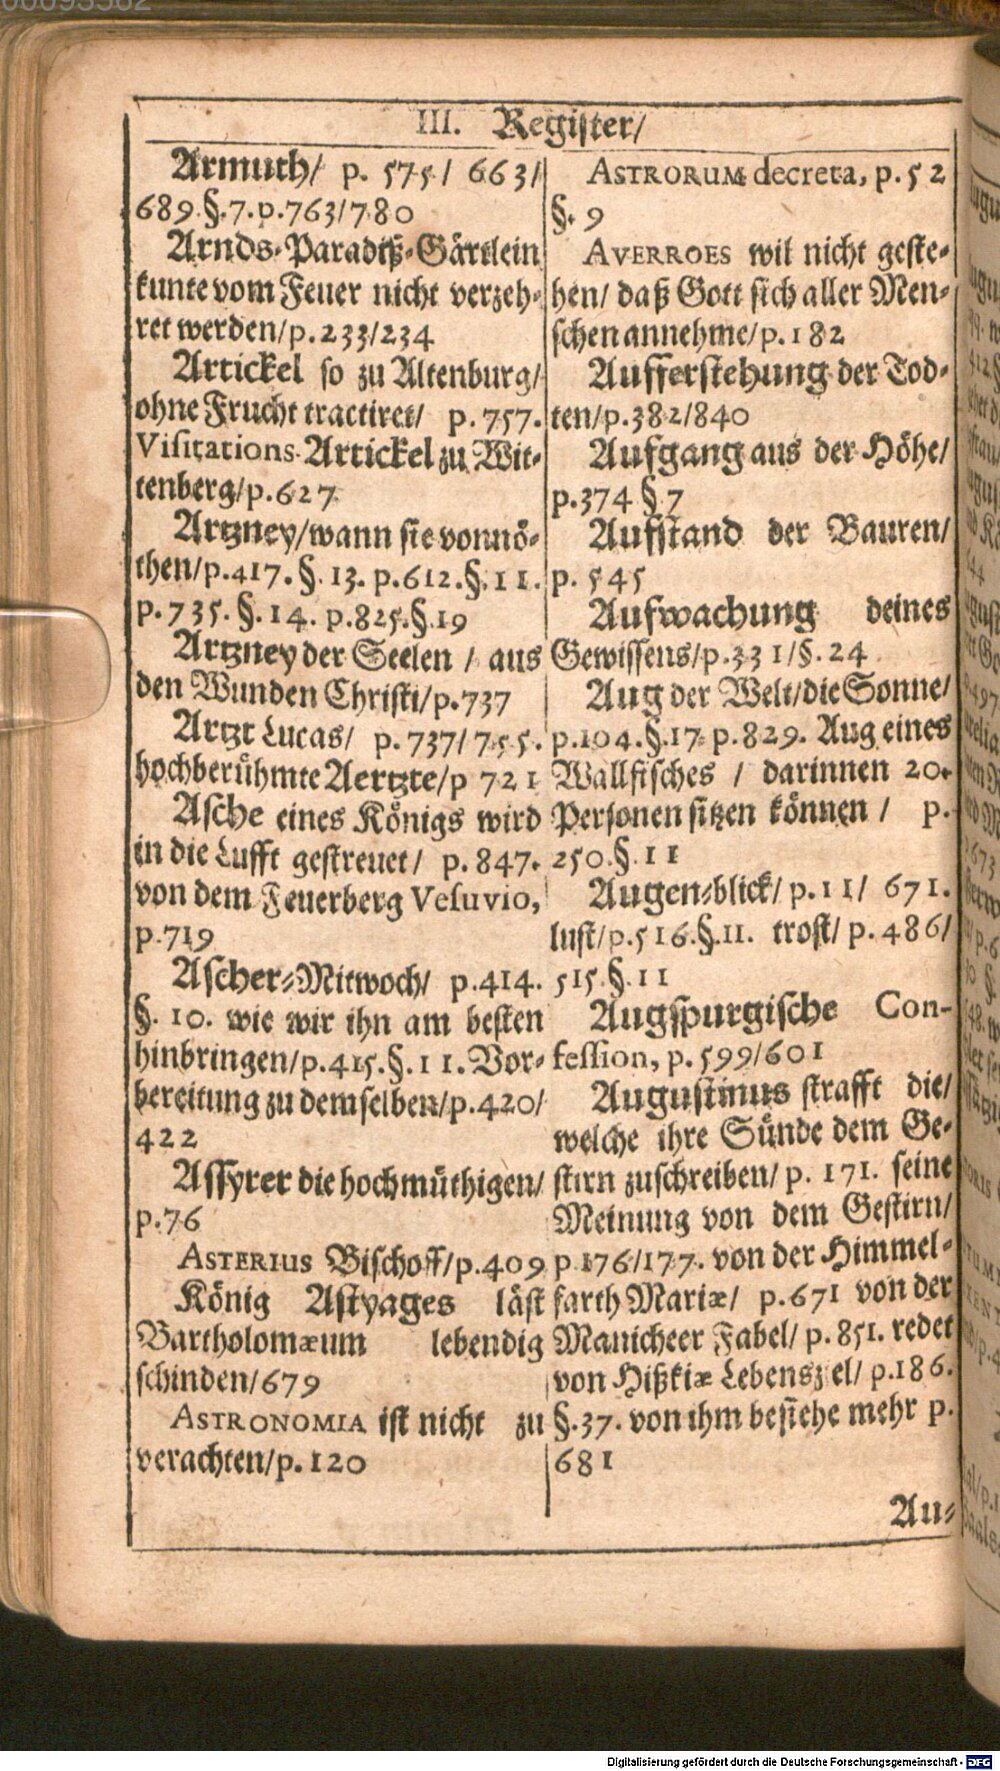 III. Register/
Armuth/ p. 575/ 663/
689.§.7.p.763/780
Arnds-Paradiß-Gärtlein
kunte vom Feuer nicht verzeh-
ret werden/p.233/234
Artickel so zu Altenburg/
ohne Frucht tractiret/ p. 757.
Visitations-Artickel zu Wit-
tenberg/p.627
Artzney/wann sie vonnö-
then/p.417.§.13. p.612.§.11.
p.735.§.14. p.825.§.19
Artzney der Seelen / aus
den Wunden Christi/p.737
Artzt Lucas/ p. 737/755.
hochberühmte Aertzte/p 721
Asche eines Königs wird
in die Lufft gestreuet/ p. 847.
von dem Feuerberg Vesuvio,
p.719
Ascher-Mitwoch/ p.414.
§. 10. wie wir ihn am besten
hinbringen/p.415.§.11. Vor-
bereitung zu demselben/p.420/
422
Assyrer die hochmüthigen/
p.76
ASTERIUS Bischoff/p.409
König Astyages läst
Bartholomæum lebendig
schinden/679
ASTRONOMIA ist nicht zu
verachten/p.120
ASTRORUM decreta, p.52
§. 9
AVERROES wil nicht geste-
hen/ daß Gott sich aller Men-
schen annehme/p.182
Aufferstehung der Tod-
ten/p.382/840
Aufgang aus der Höhe/
p.374 §.7
Aufstand der Bauren/
p. 545
Aufwachung deines
Gewissens/p.331/§.24
Aug der Welt/die Sonne/
p.104.§.17 p.829. Aug eines
Wallfisches / darinnen 20.
Personen sitzen können / p.
250.§.11
Augen-blick/p.11/ 671.
lust/p.516.§.11. trost/p.486/
515.§.11
Augspurgische Con-
fession, p. 599/601
Augustinus strafft die/
welche ihre Sünde dem Ge-
stirn zuschreiben/ p. 171. seine
Meinung von dem Gestirn/
p 176/177. von der Himmel-
farth Mariæ/ p.671 von der
Manicheer Fabel/ p.851. redet
von Hißkiæ Lebensziel/ p.186.
§.37. von ihm besiehe mehr p.
681
Au-
Digitalisierung gefördert durch die Deutsche Forschungsgemeinschaft - DFG